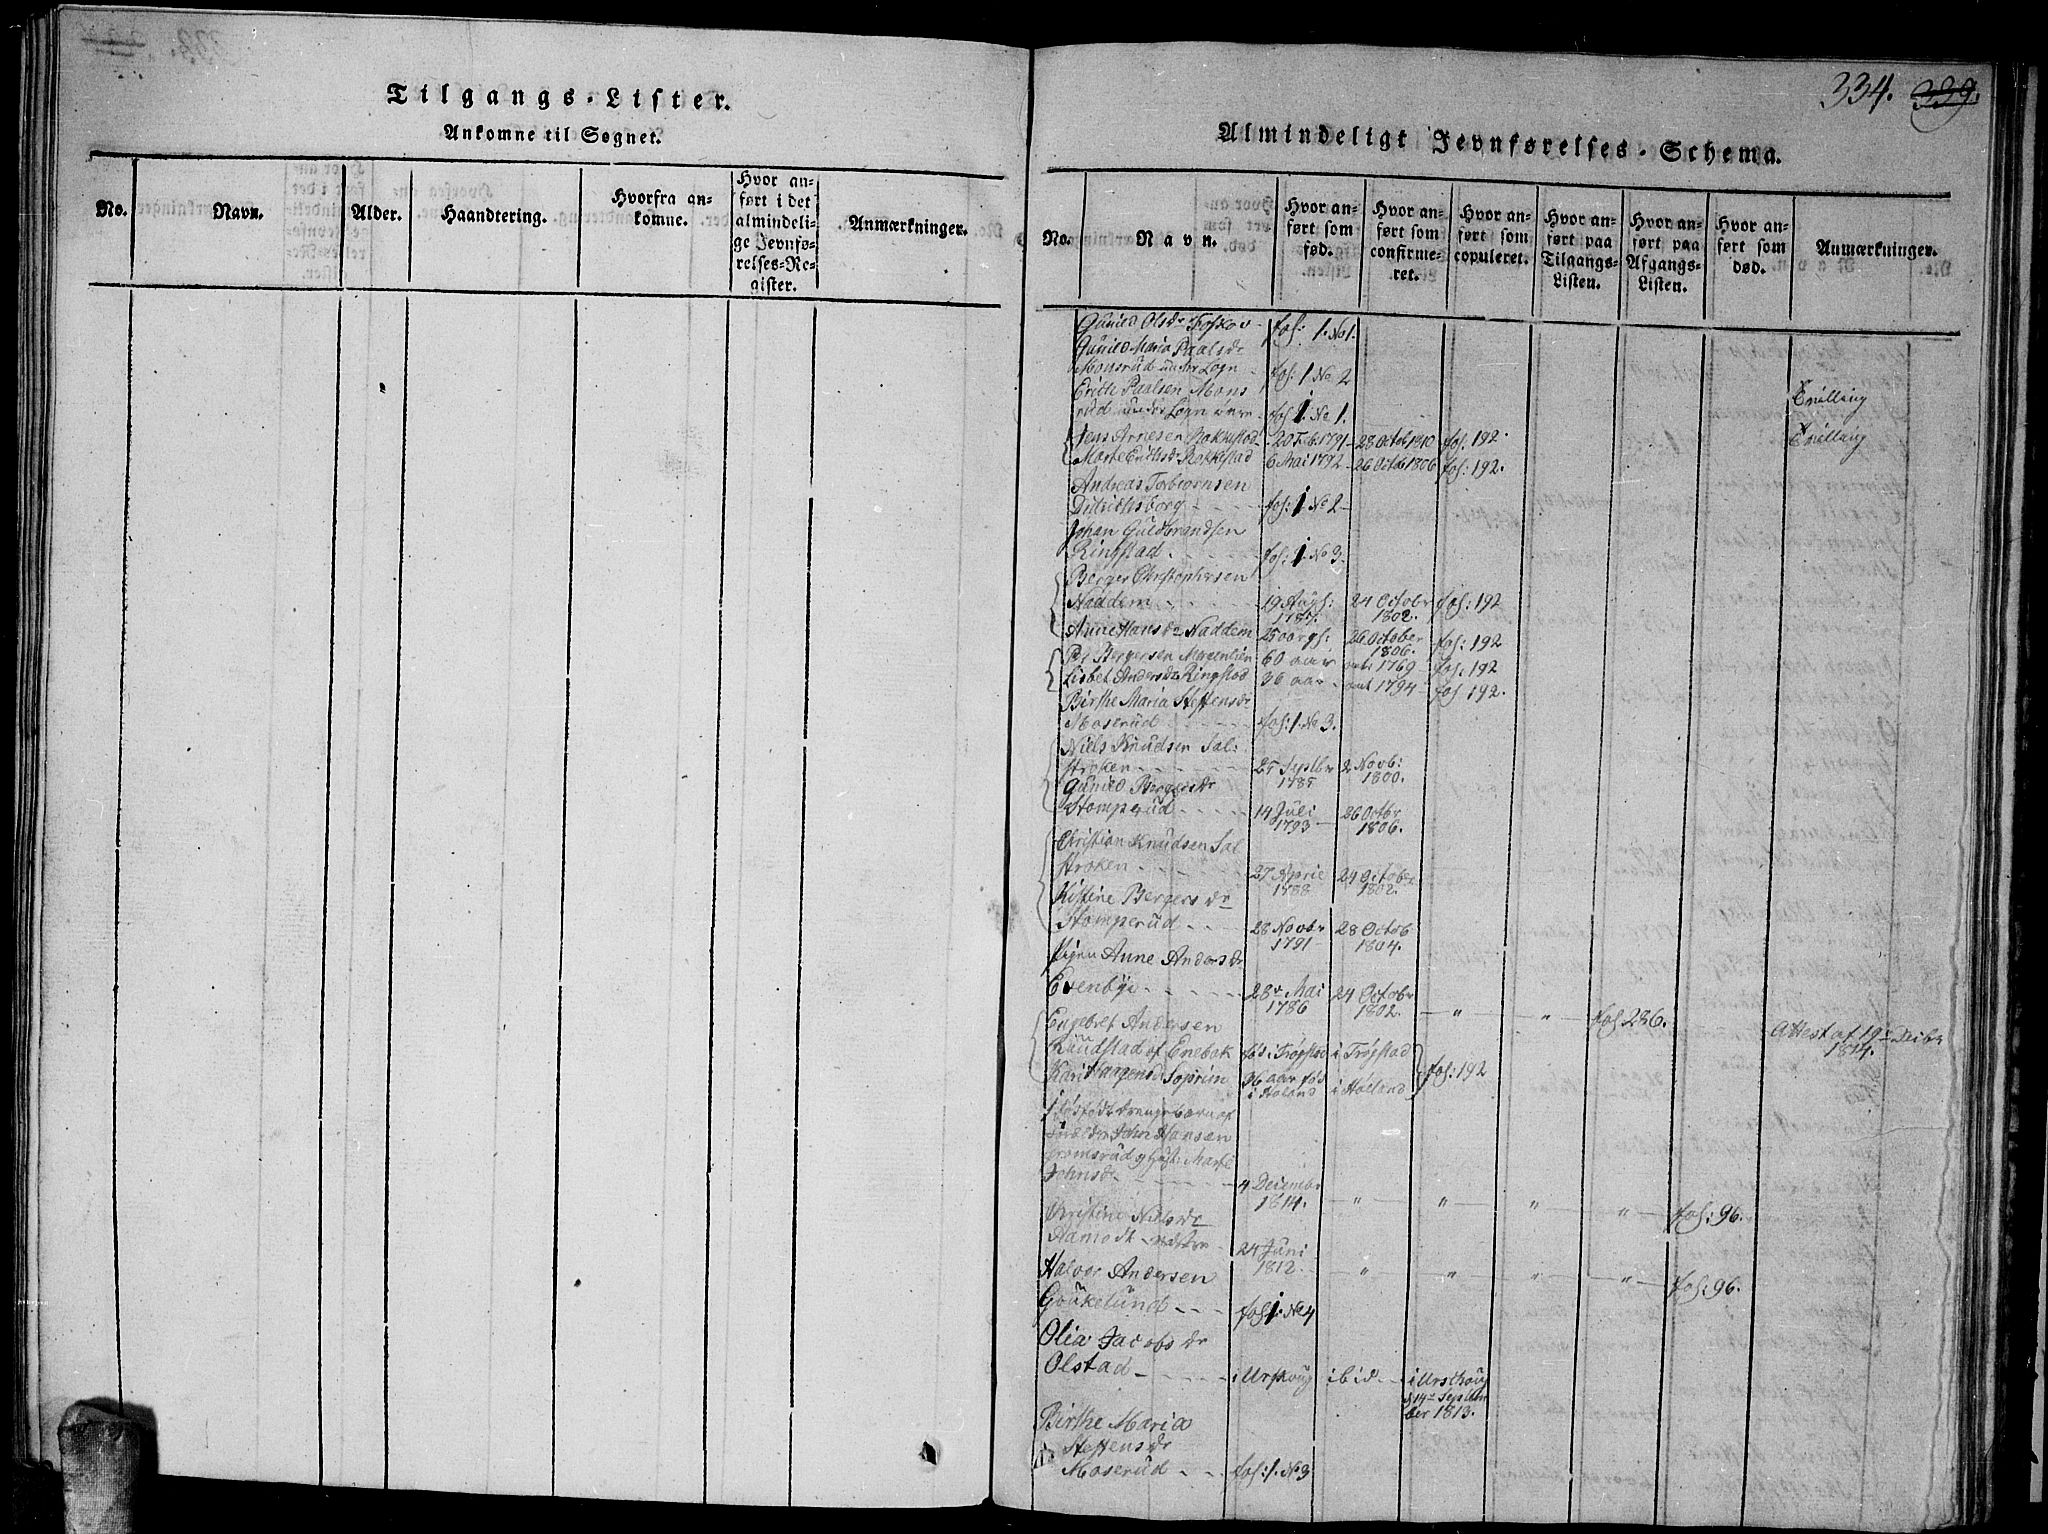 Tilgangs-Lister.
Ankomne til Sognet.
No.
Navn.
Alder.
Haandtering.
Hvorfra an-
komne.
Hvor an-
ført i det
almindeli-
ge Jevnfø-
relses-Re-
gister.
Anmærkninger.
334. 339.
Almindeligt Jevnførelses-Schema.
No.
Navn.
Hvor an-
ført som
fød.
Hvor an-
ført som
confirme-
ret.
Hvor an-
ført som
copuleret.
Hvor an-
ført paa
Tilgangs-
Listen.
Hvor an-
ført paa
Afgangs-
Listen.
Hvor an-
ført som
død.
Anmærkninger.
Gunild Olsdr Foskov - fol: 1. No 1.
Gunild Maria Paalsdr
Monsrud under Logn - fol: 1 No 2
Erich Paalsen Mons
rud under Logn - fol 1. No 1. Tvilling
Jens Arnesen Rokkestad - 20 Feb: 1791 - 28 Octob 1810 fol: 192. Tvilling
Marte Erichsdr Rokkestad 6 Mai 1792 - 26 Octob 1806 fol: 192.
Andreas Torbiørnsen
Ditrichsborg - - - - fol: 1. No 2 -
Johan Guldbrandsen
Ringstad - - - - fol: 1. No 3.
Berger Christophersen
Naddem - - - - 19 Augs: 24 Octobr fol: 192
1787. 1802.
Anne Hansdr Naddem 25 aar gl: 26 October fol: 192
1806.
Per Bergersen 60 aar ant 1769 - fol: 192
Lisbet Andersdr Ringstad 36 aar - ant 1794 - fol 192.
Birthe Maria Steffensdr
Moserud - - - - fol: 1. No 3.
Niels Knudsen Sal-
stroken - - - - 25 Septbr 2 Novb:
1785 1800.
Gunild Bergersdr
Stomperud - - - - 14 Juli 26 Octbr
1793 - 1806.
Christian Knudsen Sal
stroken - - - - 27 April 24 October
1788 1802.
Kistine Bergersdr
Stomperud - - - 28 Novbr 28 Octob
1791 - 1804.
Pigen Anne Andersdr
Evenbye - - - - 28r Mai 24 Octobr
1786 1802. - " - " - fol 286. Attest af 19r Decbr
1814.
Engebret Andersen
Ruudstad af Enebak fød i Trøgstad i Trøgstad
Kari 36 aar fød i Høland fol: 192
i Høland
John Hansen
Marte
Johnsdr - - - - 4 Decembr
1814. - " - " - " - " - fol: 96.
Christine Nielsdr
Aamodt - - 24 Juni
1812. - " - " - " - " - fol: 96.
Halvor Andersen
Goukelund - - - fol 1. No 4
Olia Jacobsdr
Olstad - - - - i Urskoug ibid - - i Urskoug
d 14r Septem
ber 1813.
Birthe Maria
Steffensdr
Moserud - - - fol: 1. No 3